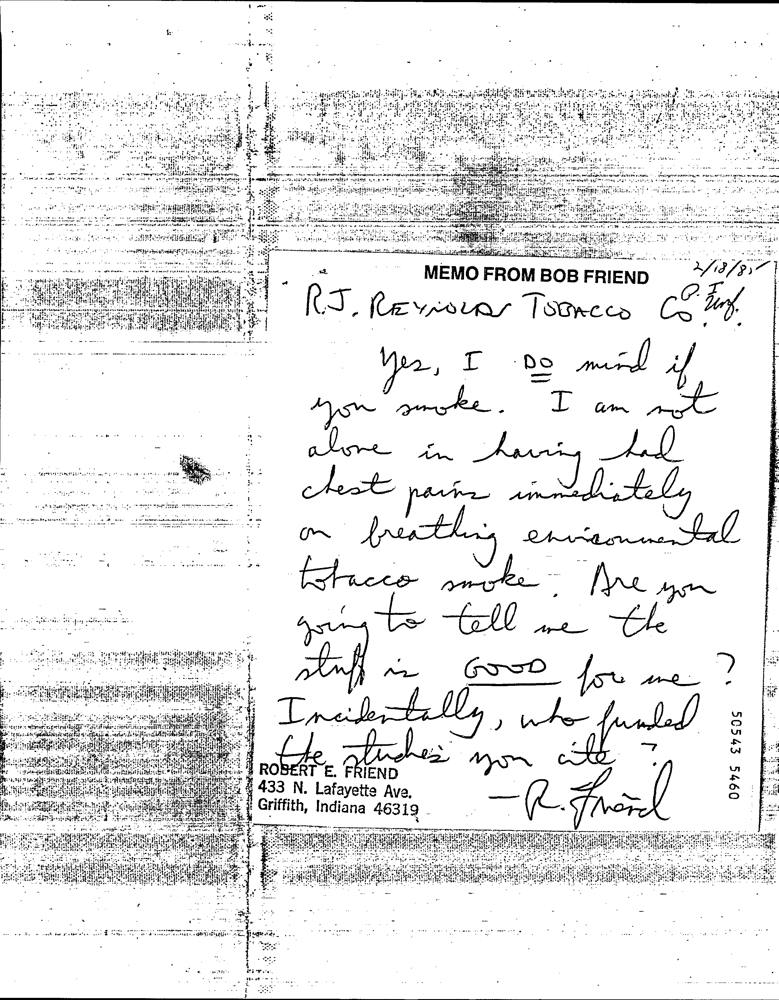 MEMO FROM BOB FRIEND
2/18/85
R.J. REYNOLDS TOBACCO Co.
Yes, I DO mind if
you smoke. I am not
alone in having had
chest pains immediately
on breathing environmental
tobacco smoke. Are you
going to tell me the
stuff is GOOD for me?
Incidentally, who funded
the studies you cite?
- R. Friend
ROBERT E. FRIEND
433 N. Lafayette Ave.
Griffith, Indiana 46319
50543 5460